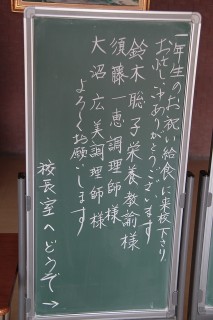 一年生のお祝い給食に来校下さり
お忙しい中ありがとうございます
鈴木聡子栄養教諭様
須藤一恵調理師様
大沼広美調理師様
よろしくお願いします
校長室へどうぞ→